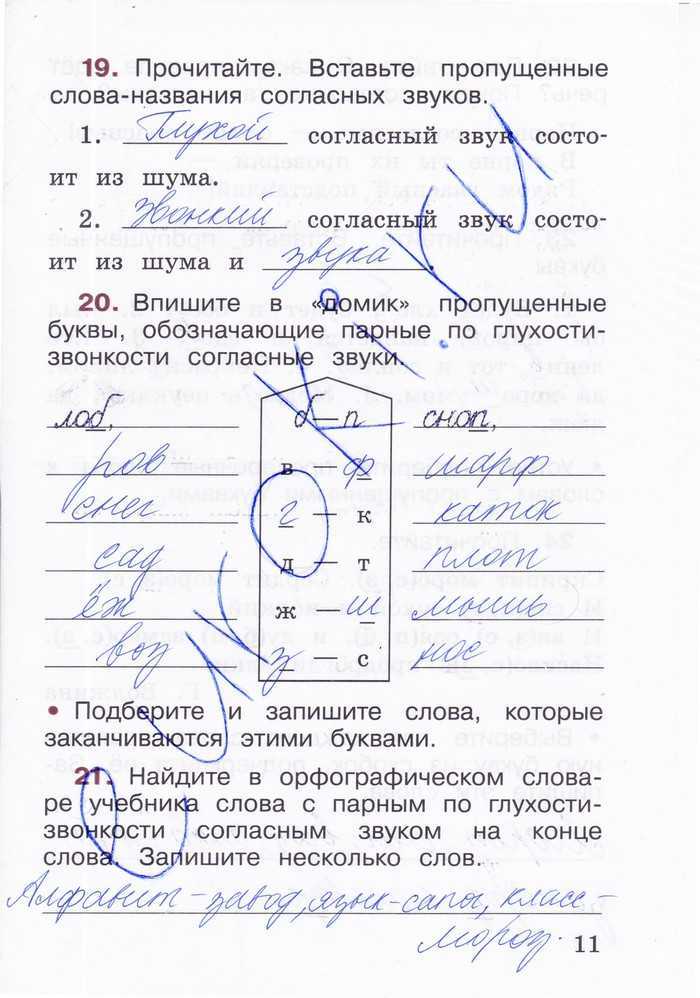 19. Прочитайте. Вставьте пропущенные
слова-названия согласных звуков.
1. Глухой согласный звук состо-
ит из шума.
2. Звонкий согласный звук состо-
ит из шума и звука.
20. Впишите в «домик» пропущенные
буквы, обозначающие парные по глухости-
звонкости согласные звуки.
лоб, б — п сноп,
ров в — ф шарф
снег г — к каток
сад д — т плот
ёж ж — ш мышь
воз з — с нос
• Подберите и запишите слова, которые
заканчиваются этими буквами.
21. Найдите в орфографическом слова-
ре учебника слова с парным по глухости-
звонкости согласным звуком на конце
слова. Запишите несколько слов.
Алфавит - завод, язык - сапог, класс -
мороз.
11